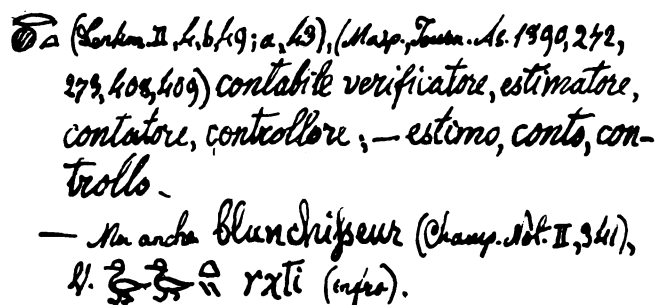 (Denkm. II, 4, b, 49; a, 43), (Masp., Journ. As. 1890, 272,
273, 408, 409) contabile verificatore, estimatore,
contatore, controllore; — estimo, conto, con-
trollo.
— Ma anche blanchisseur (Champ. Not. II, 341),
V. rχti (infra).